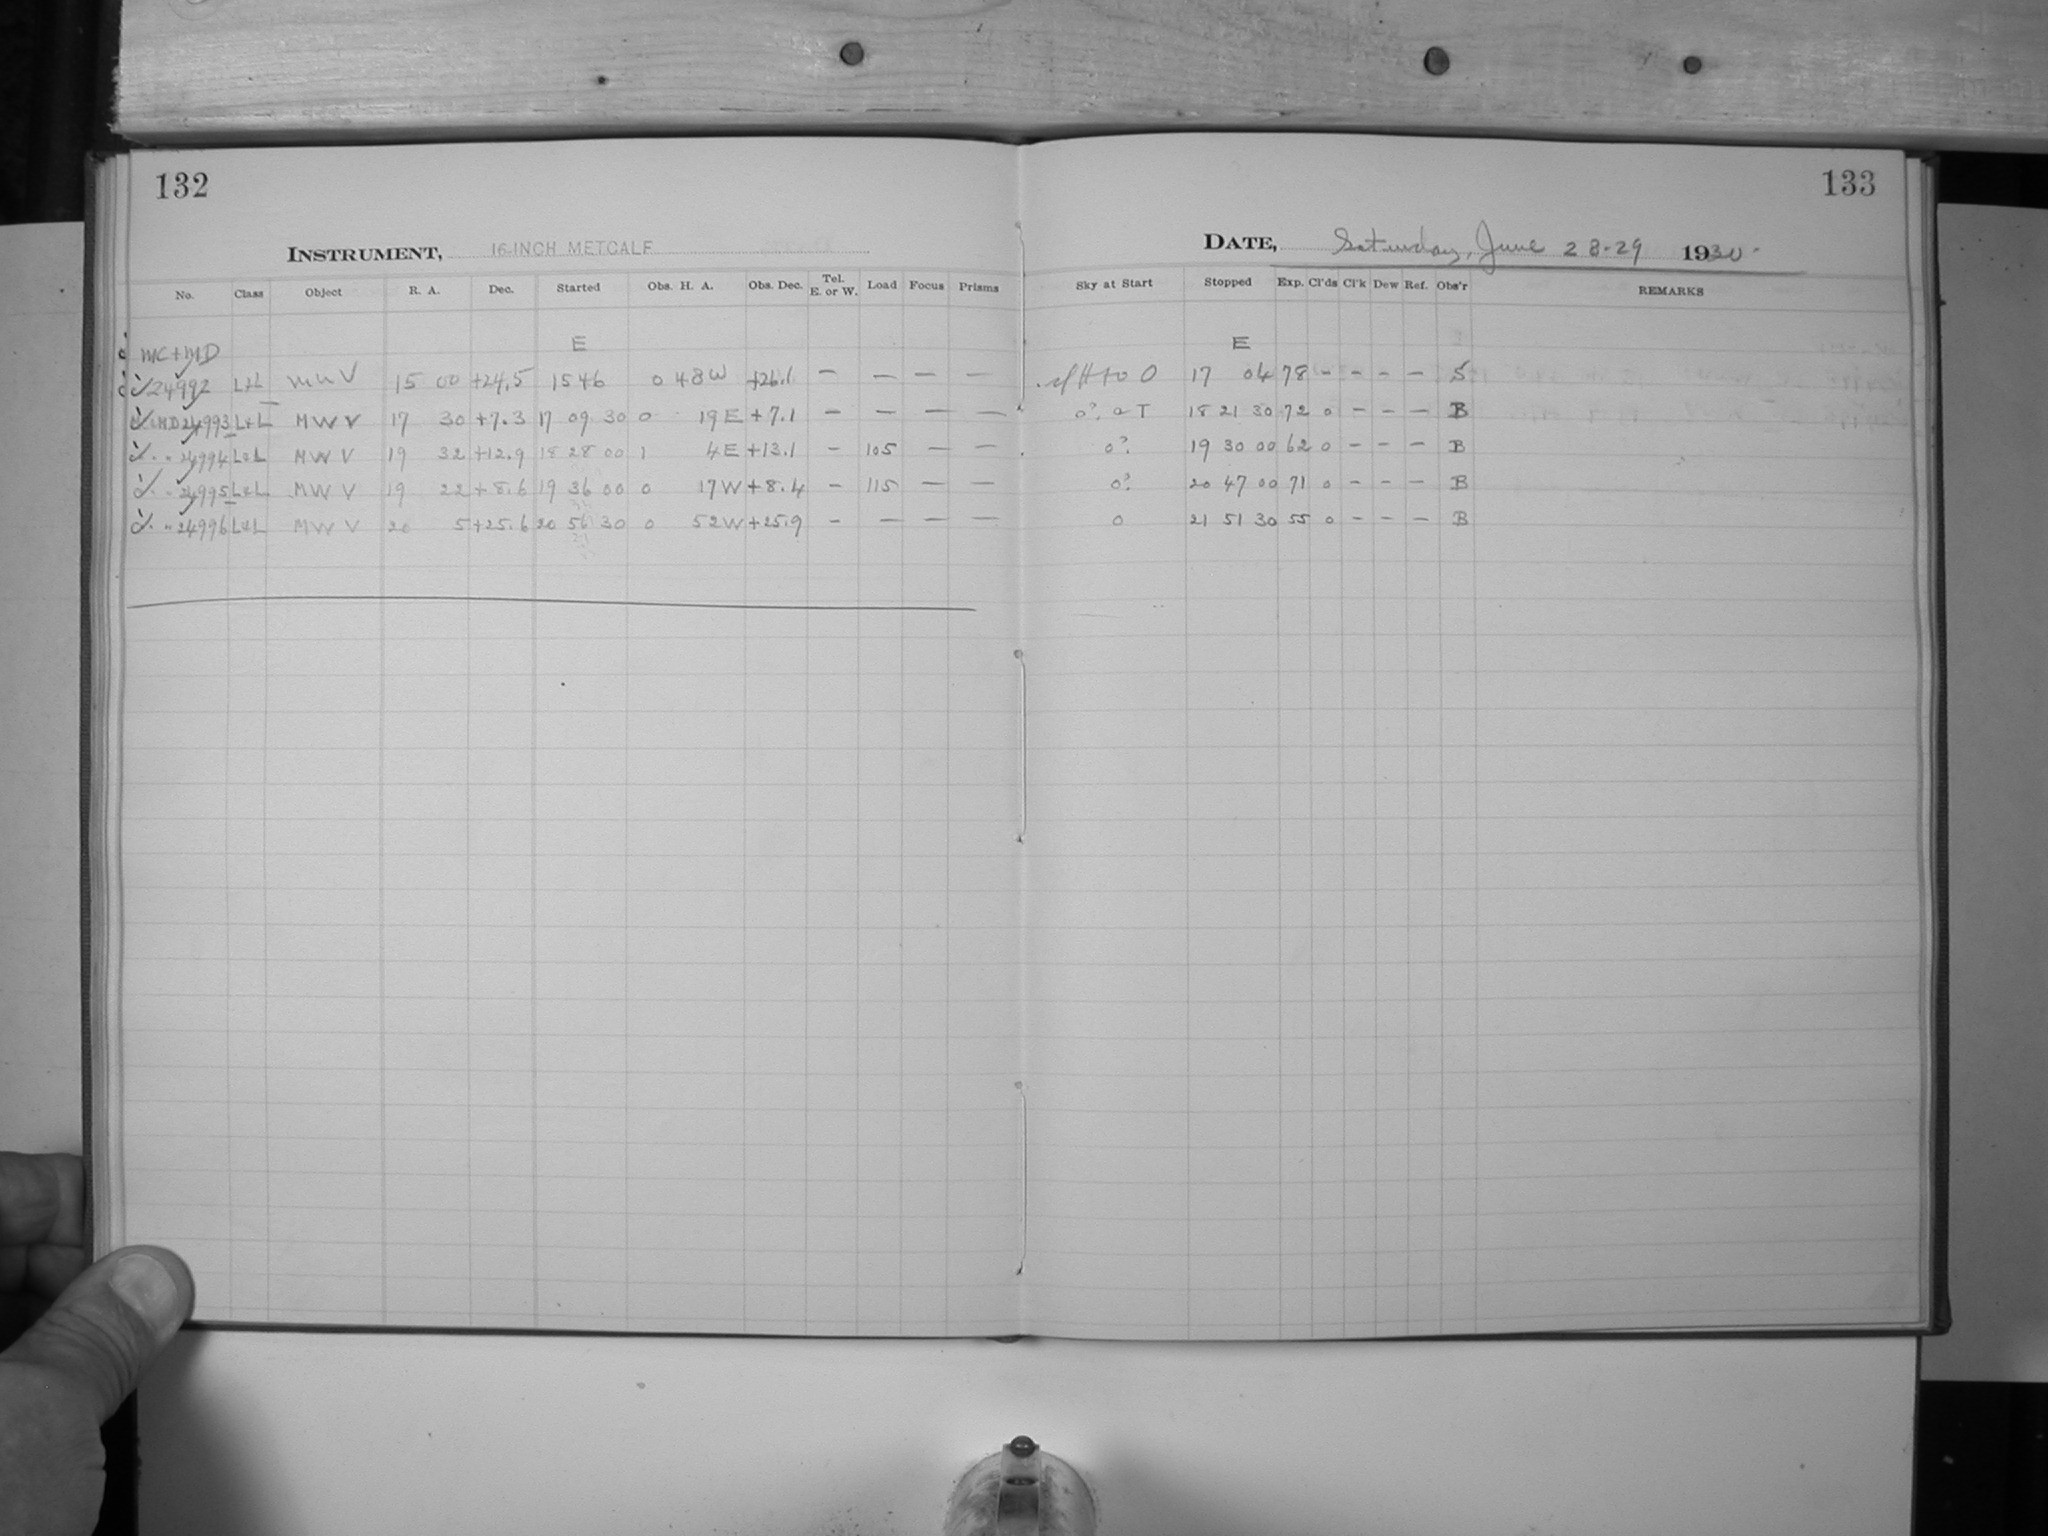 132
INSTRUMENT, 16-INCH METCALF
No. Class Object R. A. Dec. Started Obs. H. A. Obs. Dec. Tel. E. or W. Load Focus Prisms
E
MC+MD
24992 L+L MWV 15 00 +24.5 15 46 0 48W +26.1 — — — —
MD 24993 L+L MWV 17 30 +7.3 17 09 30 0 19E +7.1 — — — —
" 24994 L+L MWV 19 32 +12.9 18 28 00 1 4E +13.1 — 105 — —
" 24995 L+L MWV 19 22 +8.6 19 36 00 0 17W +8.4 — 115 — —
" 24996 L+L MWV 20 5 +25.6 20 56 30 0 52W +25.9 — — — —
133
DATE, Saturday, June 28-29 1930
Sky at Start Stopped Exp. Cl'ds Cl'k Dew Ref. Obs'r REMARKS
E
H to 0 17 04 78 - - - - S
0? a T 18 21 30 72 0 - - - B
0? 19 30 00 62 0 - - - B
0? 20 47 00 71 0 - - - B
0 21 51 30 55 0 - - - B